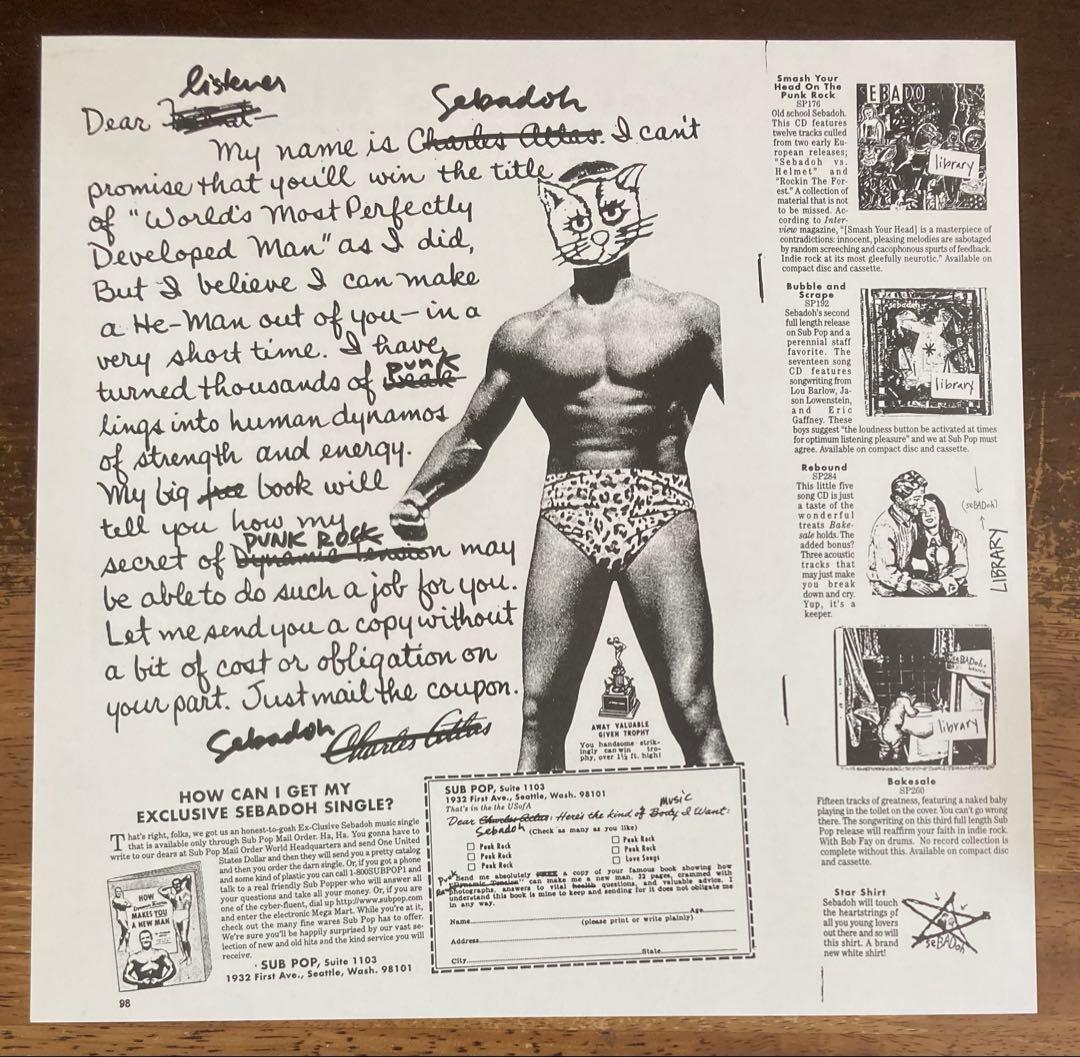 listener
Dear
Sebadoh
My name is Charles Atlas. I can't
promise that you'll win the title
of "World's Most Perfectly
Developed Man" as I did,
But I believe I can make
a He-Man out of you—in a
very short time. I have
turned thousands of weak
punk
lings into human dynamos
of strength and energy.
My big free book will
tell you how my
PUNK ROCK
secret of Dynamic Tension may
be able to do such a job for you.
Let me send you a copy without
a bit of cost or obligation on
your part. Just mail the coupon.
Sebadoh Charles Atlas
AWAY VALUABLE
GIVEN TROPHY
You handsome strik-
ingly can win tro-
phy, over 1½ ft. high!
HOW CAN I GET MY
EXCLUSIVE SEBADOH SINGLE?
That's right, folks, we got us an honest-to-gosh Ex-Clusive Sebadoh music single
that is available only through Sub Pop Mail Order. Ha, Ha. You gonna have to
write to our dears at Sub Pop Mail Order World Headquarters and send One United
States Dollar and then they will send you a pretty catalog
and then you order the darn single. Or, if you got a phone
and some kind of plastic you can call 1-800SUBPOP1 and
talk to a real friendly Sub Popper who will answer all
your questions and take all your money. Or, if you are
one of the cyber-fluent, dial up http://www.subpop.com
and enter the electronic Mega Mart. While you're at it,
check out the many fine wares Sub Pop has to offer.
We're sure you'll be happily surprised by our vast se-
lection of new and old hits and the kind service you will
receive.
· SUB POP, Suite 1103
1932 First Ave., Seattle, Wash. 98101
HOW
MAKES YOU
A NEW MAN
98
SUB POP, Suite 1103
1932 First Ave., Seattle, Wash. 98101
That's in the the USofA
music
Dear Charles Atlas: Here's the kind of Body I Want:
Sebadoh (Check as many as you like)
Punk Rock
Punk Rock
Punk Rock
Punk Rock
Punk Rock
Love Songs
Send me absolutely FREE a copy of your famous book showing how
Punk
"Dynamic Tension" can make me a new man. 32 pages, crammed with
photographs, answers to vital health questions, and valuable advice. I
understand this book is mine to keep and sending for it does not obligate me
in any way.
Name Age
(please print or write plainly)
Address
City State
Smash Your
Head On The
Punk Rock
SP176
Old school Sebadoh.
This CD features
twelve tracks culled
from two early Eu-
ropean releases;
"Sebadoh vs.
Helmet" and
"Rockin The For-
est." A collection of
material that is not
to be missed. Ac-
cording to Inter-
view magazine, "[Smash Your Head] is a masterpiece of
contradictions: innocent, pleasing melodies are sabotaged
by random screeching and cacophonous spurts of feedback.
Indie rock at its most gleefully neurotic." Available on
compact disc and cassette.
EBADO
library
Bubble and
Scrape
SP192
Sebadoh's second
full length release
on Sub Pop and a
perennial staff
favorite. The
seventeen song
CD features
songwriting from
Lou Barlow, Ja-
son Lowenstein,
and Eric
Gaffney. These
boys suggest "the loudness button be activated at times
for optimum listening pleasure" and we at Sub Pop must
agree. Available on compact disc and cassette.
sebadoh
library
Rebound
SP284
This little five
song CD is just
a taste of the
wonderful
treats Bake-
sale holds. The
added bonus?
Three acoustic
tracks that
may just make
you break
down and cry.
Yup, it's a
keeper.
(seBADoh)
LIBRARY
seBADoh.
library
Bakesale
SP260
Fifteen tracks of greatness, featuring a naked baby
playing in the toilet on the cover. You can't go wrong
there. The songwriting on this third full length Sub
Pop release will reaffirm your faith in indie rock.
With Bob Fay on drums. No record collection is
complete without this. Available on compact disc
and cassette.
Star Shirt
Sebadoh will touch
the heartstrings of
all you young lovers
out there and so will
this shirt. A brand
new white shirt!
seBADoh